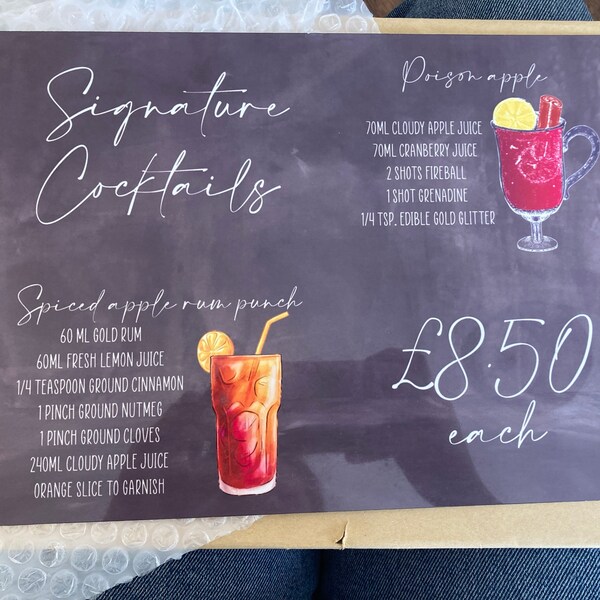 Signature
Cocktails
Poison apple
70ML CLOUDY APPLE JUICE
70ML CRANBERRY JUICE
2 SHOTS FIREBALL
1 SHOT GRENADINE
1/4 TSP. EDIBLE GOLD GLITTER
Spiced apple rum punch
60 ML GOLD RUM
60ML FRESH LEMON JUICE
1/4 TEASPOON GROUND CINNAMON
1 PINCH GROUND NUTMEG
1 PINCH GROUND CLOVES
240ML CLOUDY APPLE JUICE
ORANGE SLICE TO GARNISH
£8.50
each